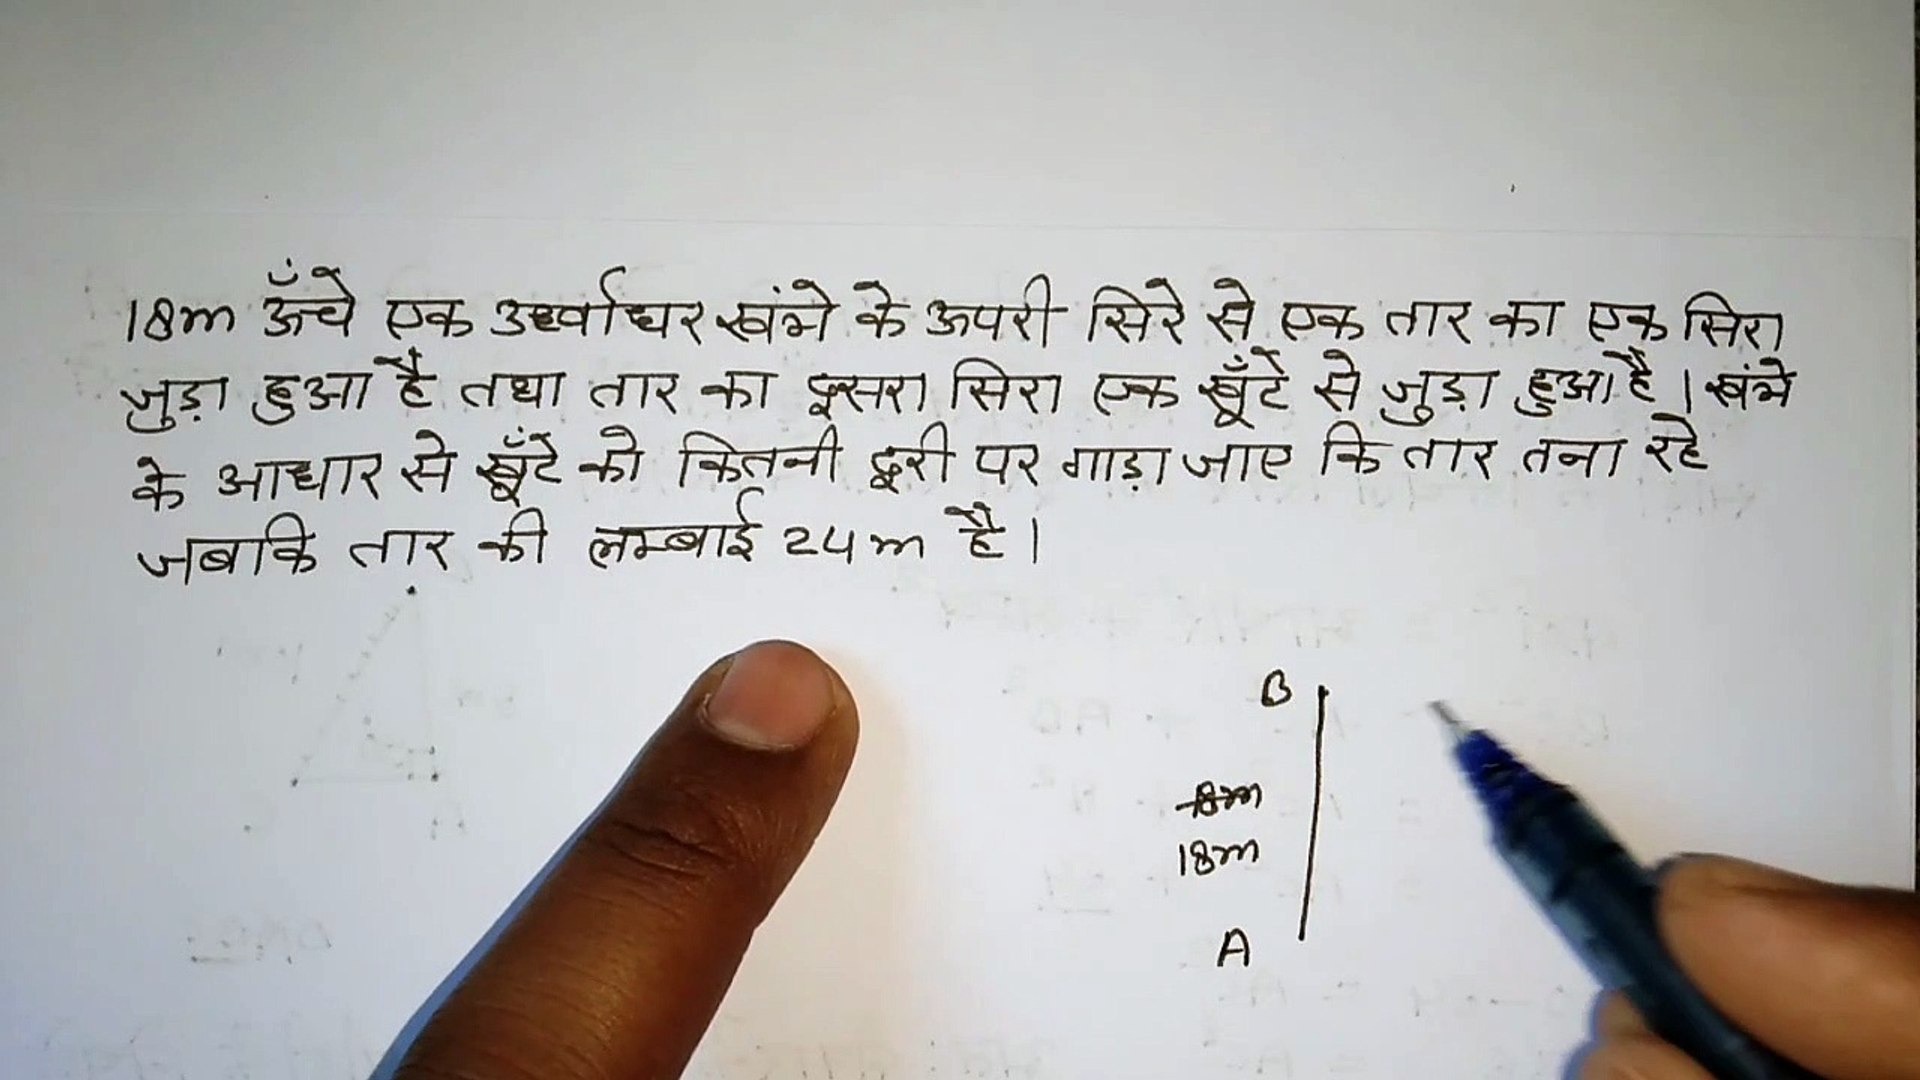 18m ऊँचे एक उर्ध्वाधर खंभे के ऊपरी सिरे से एक तार का एक सिरा
जुड़ा हुआ है तथा तार का दूसरा सिरा एक खूँटे से जुड़ा हुआ है । खंभे
के आधार से खूँटे को कितनी दूरी पर गाड़ा जाए कि तार तना रहे
जबकि तार की लम्बाई 24m है ।
B
18m
A